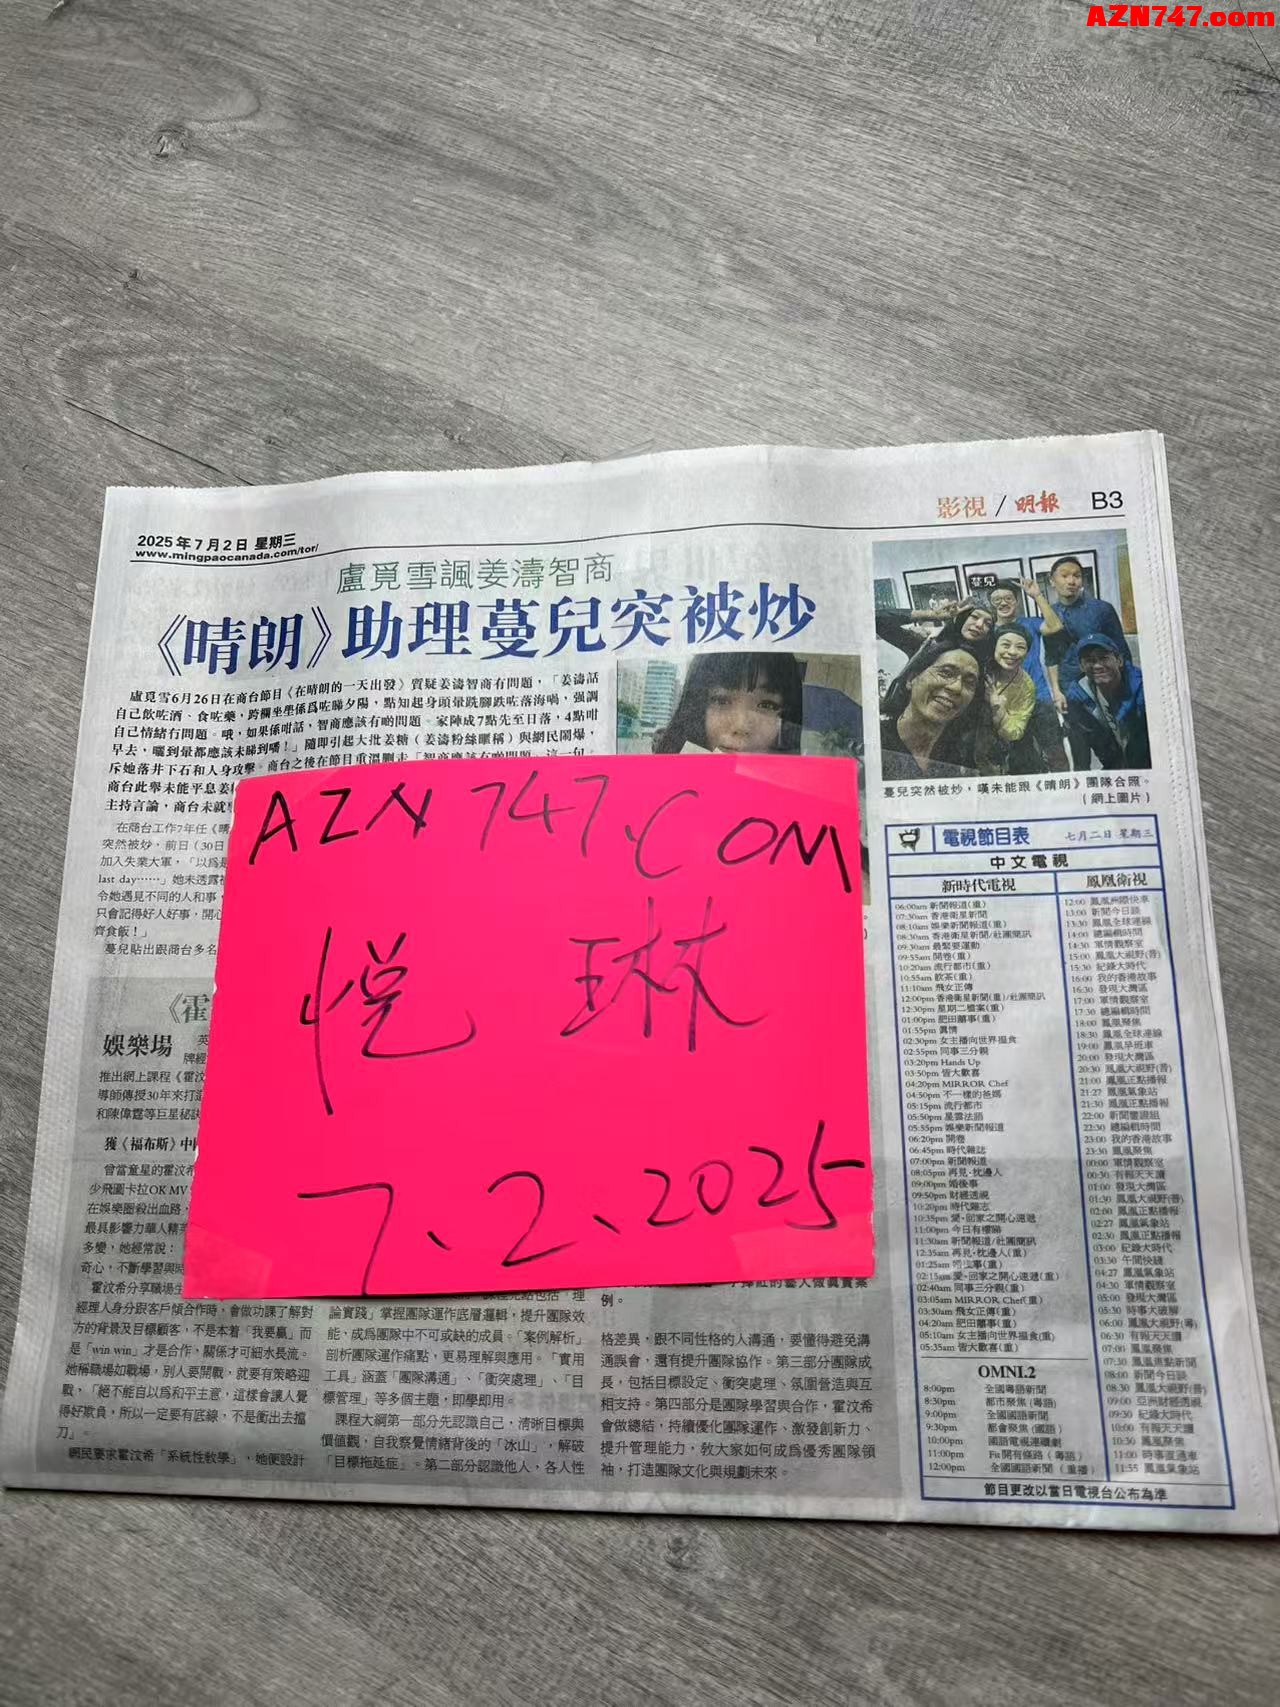 AZN747.com
影視 / 明報 B3
2025年7月2日 星期三
www.mingpaocanada.com/tor/
盧覓雪諷姜濤智商
《晴朗》助理蔓兒突被炒
盧覓雪6月26日在商台節目《在晴朗的一天出發》質疑姜濤智商有問題，「姜濤話
自己飲咗酒、食咗藥，跨欄坐墪係為咗睇夕陽，點知起身頭暈跣腳跌咗落海喎，强調
自己情緒冇問題。哦，如果係咁話，智商應該有啲問題。家陣成7點先至日落，4點咁
早去，曬到暈都應該未睇到嚿！」隨即引起大批姜糖（姜濤粉絲暱稱）與網民鬧爆，
斥她落井下石和人身攻擊。商台之後在節目重溫刪走「智商應該有啲問題」這一句。
商台此舉未能平息姜
主持言論，商台未就
在商台工作7年任《晴
突然被炒，前日（30日
加入失業大軍，「以為是
last day……」她未透露
令她遇見不同的人和事，
只會記得好人好事，開心
齊食飯！」
蔓兒貼出跟商台多名
蔓兒
蔓兒突然被炒，嘆未能跟《晴朗》團隊合照。
（網上圖片）
AZN747.COM
悅琳
7.2.2025
《霍
娛樂場
英
牌經
推出網上課程《霍汶
導師傳授30年來打造
和陳偉霆等巨星秘訣
獲《福布斯》中
曾當童星的霍汶希
少飛圖卡拉OK MV
在娛樂圈殺出血路，
最具影響力華人精英
多變，她經常說：
奇心，不斷學習與時
霍汶希分享職場生
經理人身分跟客戶傾合作時，會做功課了解對
方的背景及目標顧客，不是本着「我要贏」而
是「win win」才是合作，關係才可細水長流。
她稱職場如戰場，別人要開戰，就要有策略迎
戰，「絕不能自以為和平主意，這樣會讓人覺
得好欺負，所以一定要有底線，不是衝出去擋
刀」。
網民要求霍汶希「系統性教學」，她便設計
課程亮點包括「理
論實踐」掌握團隊運作底層邏輯，提升團隊效
能，成為團隊中不可或缺的成員。「案例解析」
剖析團隊運作痛點，更易理解與應用。「實用
工具」涵蓋「團隊溝通」、「衝突處理」、「目
標管理」等多個主題，即學即用。
課程大綱第一部分先認識自己，清晰目標與
價值觀，自我察覺情緒背後的「冰山」，解破
「目標拖延症」。第二部分認識他人，各人性
的藝人做真實案
例。
格差異，跟不同性格的人溝通，要懂得避免溝
通誤會，還有提升團隊協作。第三部分團隊成
長，包括目標設定、衝突處理、氛圍營造與互
相支持。第四部分是團隊學習與合作，霍汶希
會做總結，持續優化團隊運作、激發創新力、
提升管理能力，教大家如何成為優秀團隊領
袖，打造團隊文化與規劃未來。
電視節目表 七月二日 星期三
中文電視
新時代電視
06:00am 新聞報道(重)
07:30am 香港衛星新聞
08:10am 娛樂新聞報道(重)
08:30am 香港衛星新聞/社團簡訊
09:30am 最緊要運動
09:55am 開卷(重)
10:20am 流行都市(重)
10:55am 飲茶(重)
11:10am 飛女正傳
12:00pm 香港衛星新聞(重)/社團簡訊
12:30pm 星期二檔案(重)
01:00pm 肥田囍事(重)
01:55pm 真情
02:30pm 女主播向世界搵食
02:55pm 同事三分親
03:20pm Hands Up
03:50pm 皆大歡喜
04:20pm MIRROR Chef
04:50pm 不一樣的爸媽
05:15pm 流行都市
05:50pm 星雲法語
05:55pm 娛樂新聞報道
06:20pm 開卷
06:45pm 時代雜誌
07:00pm 新聞報道
08:05pm 再見·枕邊人
09:00pm 婚後事
09:50pm 財經透視
10:20pm 時代雜志
10:35pm 愛·回家之開心速遞
11:00pm 今日有樓睇
11:30am 新聞報道/社團簡訊
12:35am 再見·枕邊人(重)
02:15am 愛·回家之開心速遞(重)
02:40am 同事三分親(重)
03:05am MIRROR Chef(重)
03:30am 飛女正傳(重)
04:20am 肥田囍事(重)
05:10am 女主播向世界搵食(重)
05:35am 皆大歡喜(重)
鳳凰衛視
12:00 鳳凰洲際快車
13:00 新聞今日談
13:30 鳳凰全球連線
14:00 總編輯時間
14:30 軍情觀察室
15:00 鳳凰大視野(普)
15:30 紀錄大時代
16:00 我的香港故事
16:30 發現大灣區
17:00 軍情觀察室
17:30 總編輯時間
18:00 鳳凰聚焦
18:30 鳳凰全球連線
19:00 鳳凰早班車
20:00 發現大灣區
20:30 鳳凰大視野(普)
21:00 鳳凰正點播報
21:27 鳳凰氣象站
21:30 鳳凰正點播報
22:00 新聞啟證組
22:30 總編輯時間
23:00 我的香港故事
23:30 鳳凰聚焦
00:00 軍情觀察室
00:30 有報天天讀
01:00 發現大灣區
01:30 鳳凰大視野(普)
02:00 鳳凰正點播報
02:27 鳳凰氣象站
02:30 鳳凰正點播報
03:00 紀錄大時代
03:30 午間快綫
04:27 鳳凰氣象站
04:30 軍情觀察室
05:00 發現大灣區
05:30 時事大破解
06:00 鳳凰大視野(粵)
06:30 有報天天讀
07:00 鳳凰聚焦
07:30 鳳凰焦點新聞
08:00 新聞今日談
08:30 鳳凰大視野(普)
09:00 亞洲財經透視
09:30 紀錄大時代
10:00 有報天天讀
10:30 鳳凰聚焦
11:00 時事直通車
11:55 鳳凰氣象站
OMNI.2
8:00pm 全國粵語新聞
8:30pm 都市聚焦(粵語)
9:00pm 全國國語新聞
9:30pm 都會聚焦(國語)
10:00pm 國語電視連續劇
11:00pm Fix開有條路(粵語)
12:00pm 全國國語新聞(重播)
節目更改以當日電視台公布為準